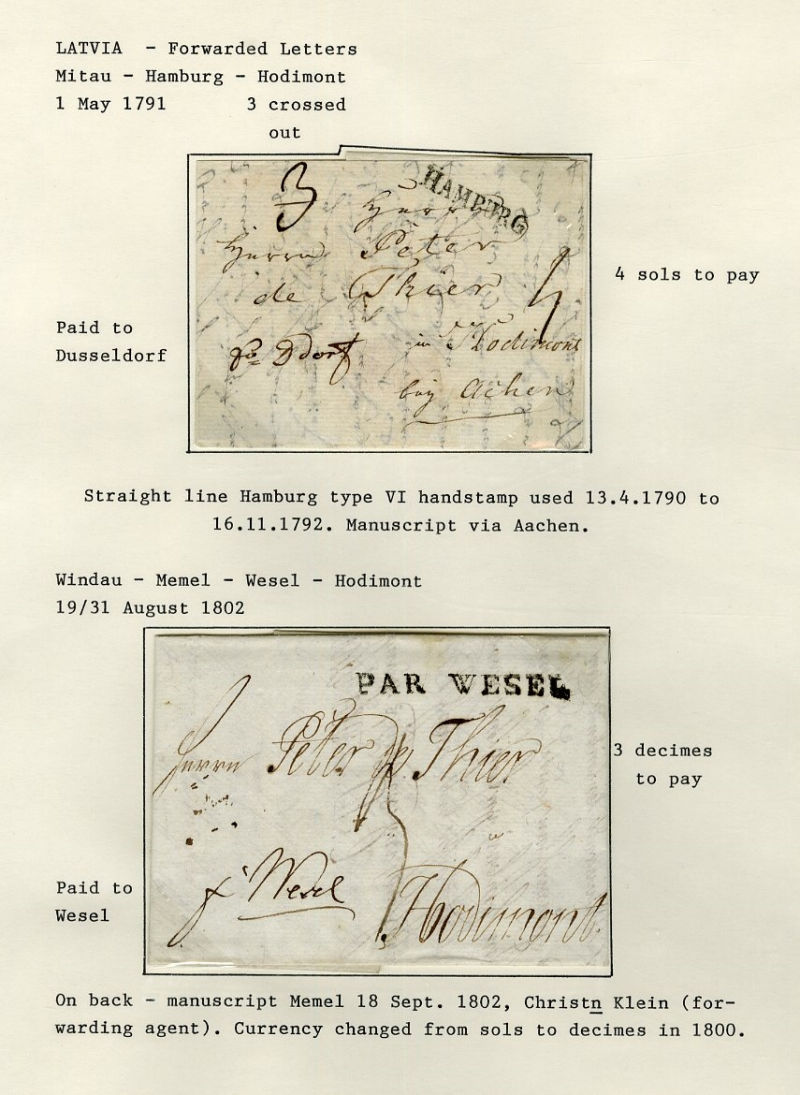 LATVIA - Forwarded Letters
Mitau - Hamburg - Hodimont
1 May 1791 3 crossed
out
3
HAMBURG
Herrn
Herrn Peter
de Thier
4
4 sols to pay
Paid to
Dusseldorf
fro Ddorf
in Hodimont
bey Achen
Straight line Hamburg type VI handstamp used 13.4.1790 to
16.11.1792. Manuscript via Aachen.
Windau - Memel - Wesel - Hodimont
19/31 August 1802
PAR WESEL
Herrn Peter de Thier
3 decimes
to pay
Paid to
Wesel
Wesel
Hodimont.
On back - manuscript Memel 18 Sept. 1802, Christn Klein (for-
warding agent). Currency changed from sols to decimes in 1800.